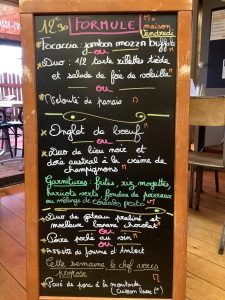 12€90 FORMULE
maison
vendredi
Focaccia jambon mozza buffala
ou
Duo : 1/2 tarte rillettes tiède
et salade de foie de volaille
ou
Velouté de panais
Onglet de bœuf
ou
Duo de lieu noir et
doré austral à la crème de
champignons
Garnitures : frites, riz, mogettes,
haricots verts, fondue de poireaux
ou mélange de céréales pesto
Duo de gâteau praliné et
moelleux banane chocolat
ou
Poire poché au vin
ou
Assiette de fourme d'Ambert
Cette semaine le chef vous
propose
Pavé de porc à la moutarde